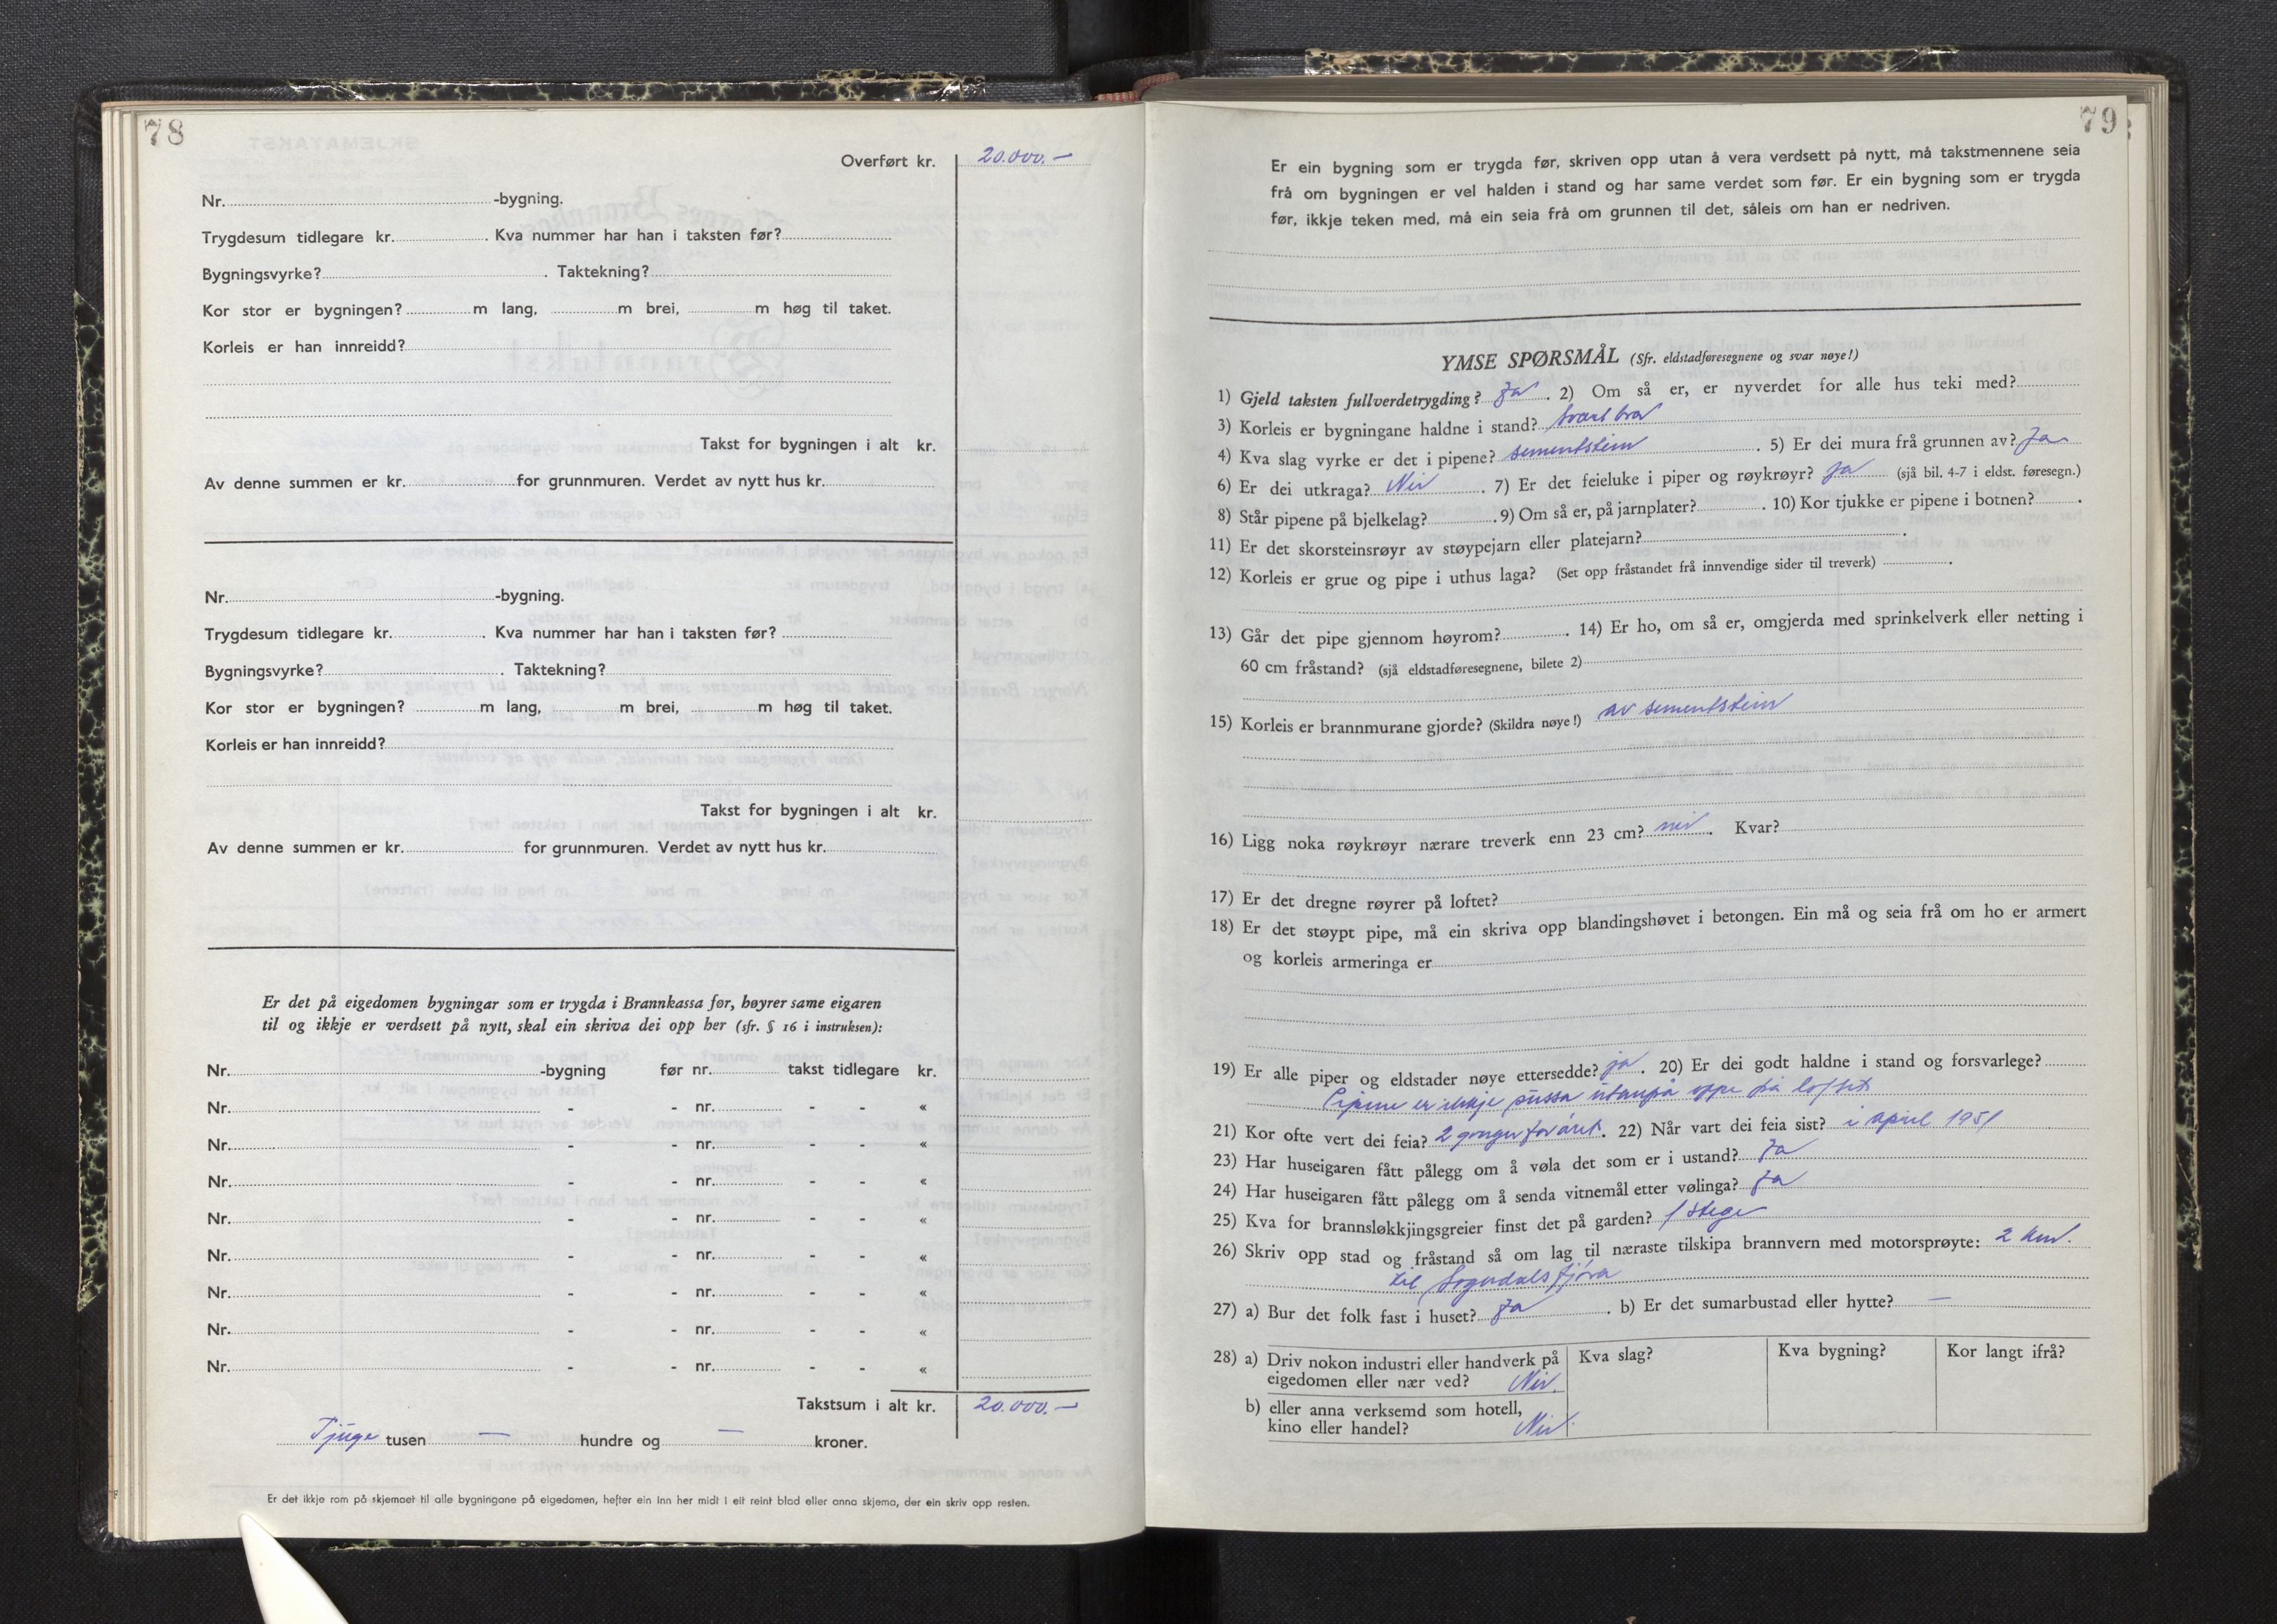 78
Overført kr. 20.000.—
Nr. -bygning.
Trygdesum tidlegare kr. . Kva nummer har han i taksten før?
Bygningsvyrke? . Taktekning?
Kor stor er bygningen? m lang, m brei, m høg til taket.
Korleis er han innreidd?
Takst for bygningen i alt kr.
Av denne summen er kr. for grunnmuren. Verdet av nytt hus kr.
Nr. -bygning.
Trygdesum tidlegare kr. . Kva nummer har han i taksten før?
Bygningsvyrke? . Taktekning?
Kor stor er bygningen? m lang, m brei, m høg til taket.
Korleis er han innreidd?
Takst for bygningen i alt kr.
Av denne summen er kr. for grunnmuren. Verdet av nytt hus kr.
Er det på eigedomen bygningar som er trygda i Brannkassa før, høyrer same eigaren
til og ikkje er verdsett på nytt, skal ein skriva dei opp her (sfr. § 16 i instruksen):
Nr. -bygning før nr. takst tidlegare kr.
Nr. - - nr. - - «
Nr. - - nr. - - «
Nr. - - nr. - - «
Nr. - - nr. - - «
Nr. - - nr. - - «
Nr. - - nr. - - «
Nr. - - nr. - - «
Nr. - - nr. - - «
Takstsum i alt kr. 20.000.—
Tjuge tusen — hundre og — kroner.
Er det ikkje rom på skjemaet til alle bygningane på eigedomen, hefter ein inn her midt i eit reint blad eller anna skjema, der ein skriv opp resten.
79
Er ein bygning som er trygda før, skriven opp utan å vera verdsett på nytt, må takstmennene seia
frå om bygningen er vel halden i stand og har same verdet som før. Er ein bygning som er trygda
før, ikkje teken med, må ein seia frå om grunnen til det, såleis om han er nedriven.
YMSE SPØRSMÅL (Sfr. eldstadføresegnene og svar nøye!)
1) Gjeld taksten fullverdetrygding? Ja . 2) Om så er, er nyverdet for alle hus teki med?
3) Korleis er bygningane haldne i stand? svært bra
4) Kva slag vyrke er det i pipene? sementstein . 5) Er dei mura frå grunnen av? Ja
6) Er dei utkraga? Nei . 7) Er det feieluke i piper og røykrøyr? Ja (sjå bil. 4-7 i eldst. føresegn.)
8) Står pipene på bjelkelag? . 9) Om så er, på jarnplater? . 10) Kor tjukke er pipene i botnen? .
11) Er det skorsteinsrøyr av støypejarn eller platejarn? .
12) Korleis er grue og pipe i uthus laga? (Set opp fråstandet frå innvendige sider til treverk) .
13) Går det pipe gjennom høyrom? . 14) Er ho, om så er, omgjerda med sprinkelverk eller netting i
60 cm fråstand? (sjå eldstadføresegnene, bilete 2)
15) Korleis er brannmurane gjorde? (Skildra nøye!) av sementstein
16) Ligg noka røykrøyr nærare treverk enn 23 cm? nei . Kvar?
17) Er det dregne røyrer på loftet?
18) Er det støypt pipe, må ein skriva opp blandingshøvet i betongen. Ein må og seia frå om ho er armert
og korleis armeringa er
19) Er alle piper og eldstader nøye ettersedde? ja . 20) Er dei godt haldne i stand og forsvarlege?
Pipene er ikkje pussa utanpå oppe på loftet
21) Kor ofte vert dei feia? 2 gonger for året . 22) Når vart dei feia sist? i april 1951
23) Har huseigaren fått pålegg om å vøla det som er i ustand? Ja
24) Har huseigaren fått pålegg om å senda vitnemål etter vølinga? Ja
25) Kva for brannsløkkjingsgreier finst det på garden? 1 stege
26) Skriv opp stad og fråstand så om lag til næraste tilskipa brannvern med motorsprøyte: 2 km.
til Sogndalsfjøra
27) a) Bur det folk fast i huset? Ja . b) Er det sumarbustad eller hytte? —
28) a) Driv nokon industri eller handverk på Kva slag? Kva bygning? Kor langt ifrå?
eigedomen eller nær ved? Nei.
b) eller anna verksemd som hotell,
kino eller handel? Nei